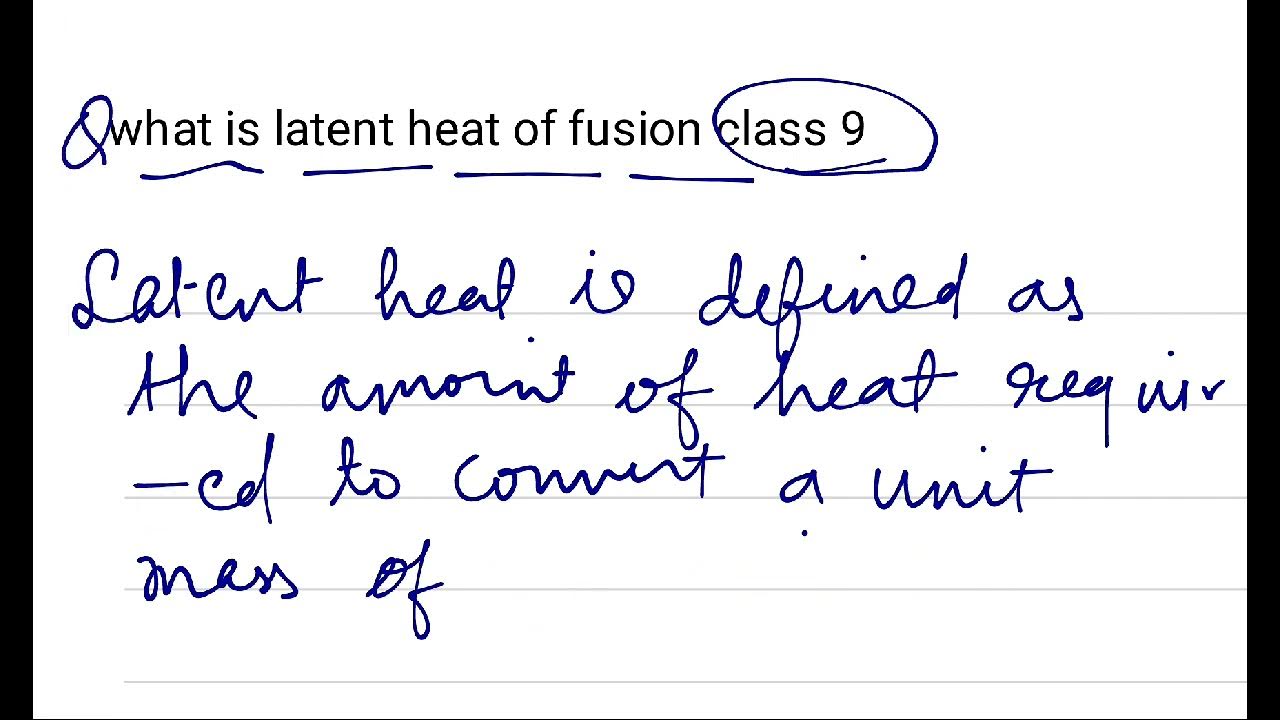 Q what is latent heat of fusion class 9
Latent heat is defined as
the amount of heat requir
-ed to convert a unit
mass of